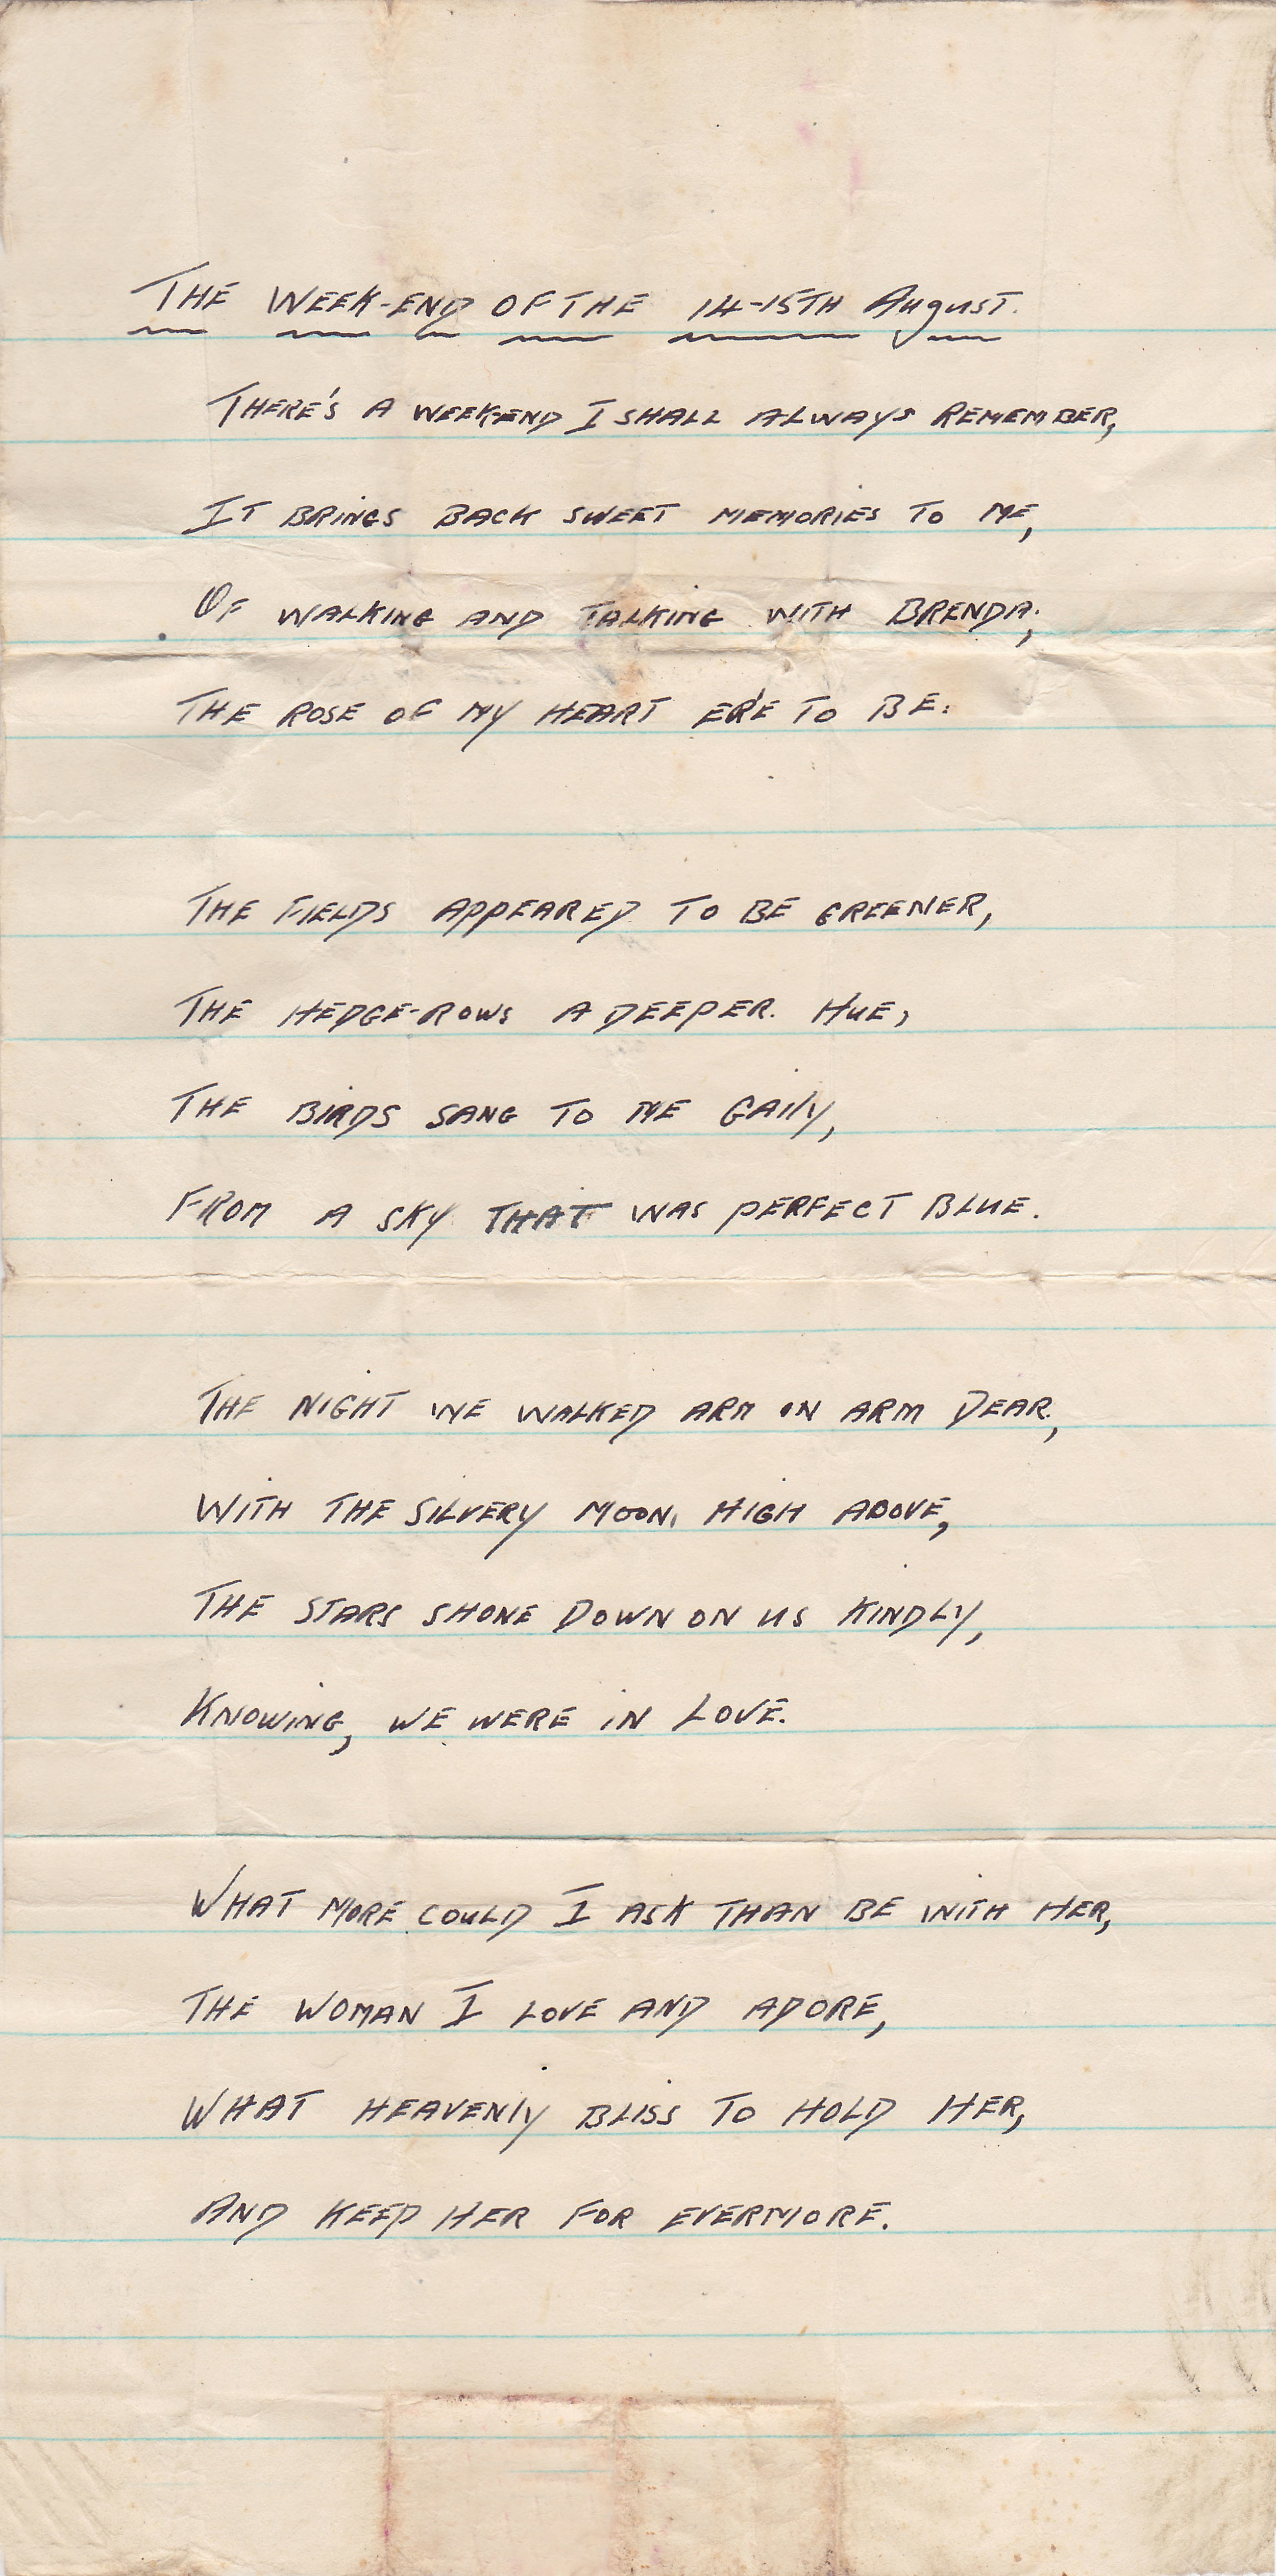 THE WEEK-END OF THE 14-15TH August.
THERE'S A WEEK-END I SHALL ALWAYS REMEMBER,
IT BRINGS BACK SWEET MEMORIES TO ME,
OF WALKING AND TALKING WITH BRENDA;
THE ROSE OF MY HEART ER'E TO BE.
THE FIELDS APPEARED TO BE GREENER,
THE HEDGE-ROWS A DEEPER HUE,
THE BIRDS SANG TO ME GAILY,
FROM A SKY THAT WAS PERFECT BLUE.
THE NIGHT WE WALKED ARM IN ARM DEAR,
WITH THE SILVERY MOON, HIGH ABOVE,
THE STARS SHONE DOWN ON US KINDLY,
KNOWING, WE WERE IN LOVE.
WHAT MORE COULD I ASK THAN BE WITH HER,
THE WOMAN I LOVE AND ADORE,
WHAT HEAVENLY BLISS TO HOLD HER,
AND KEEP HER FOR EVERMORE.